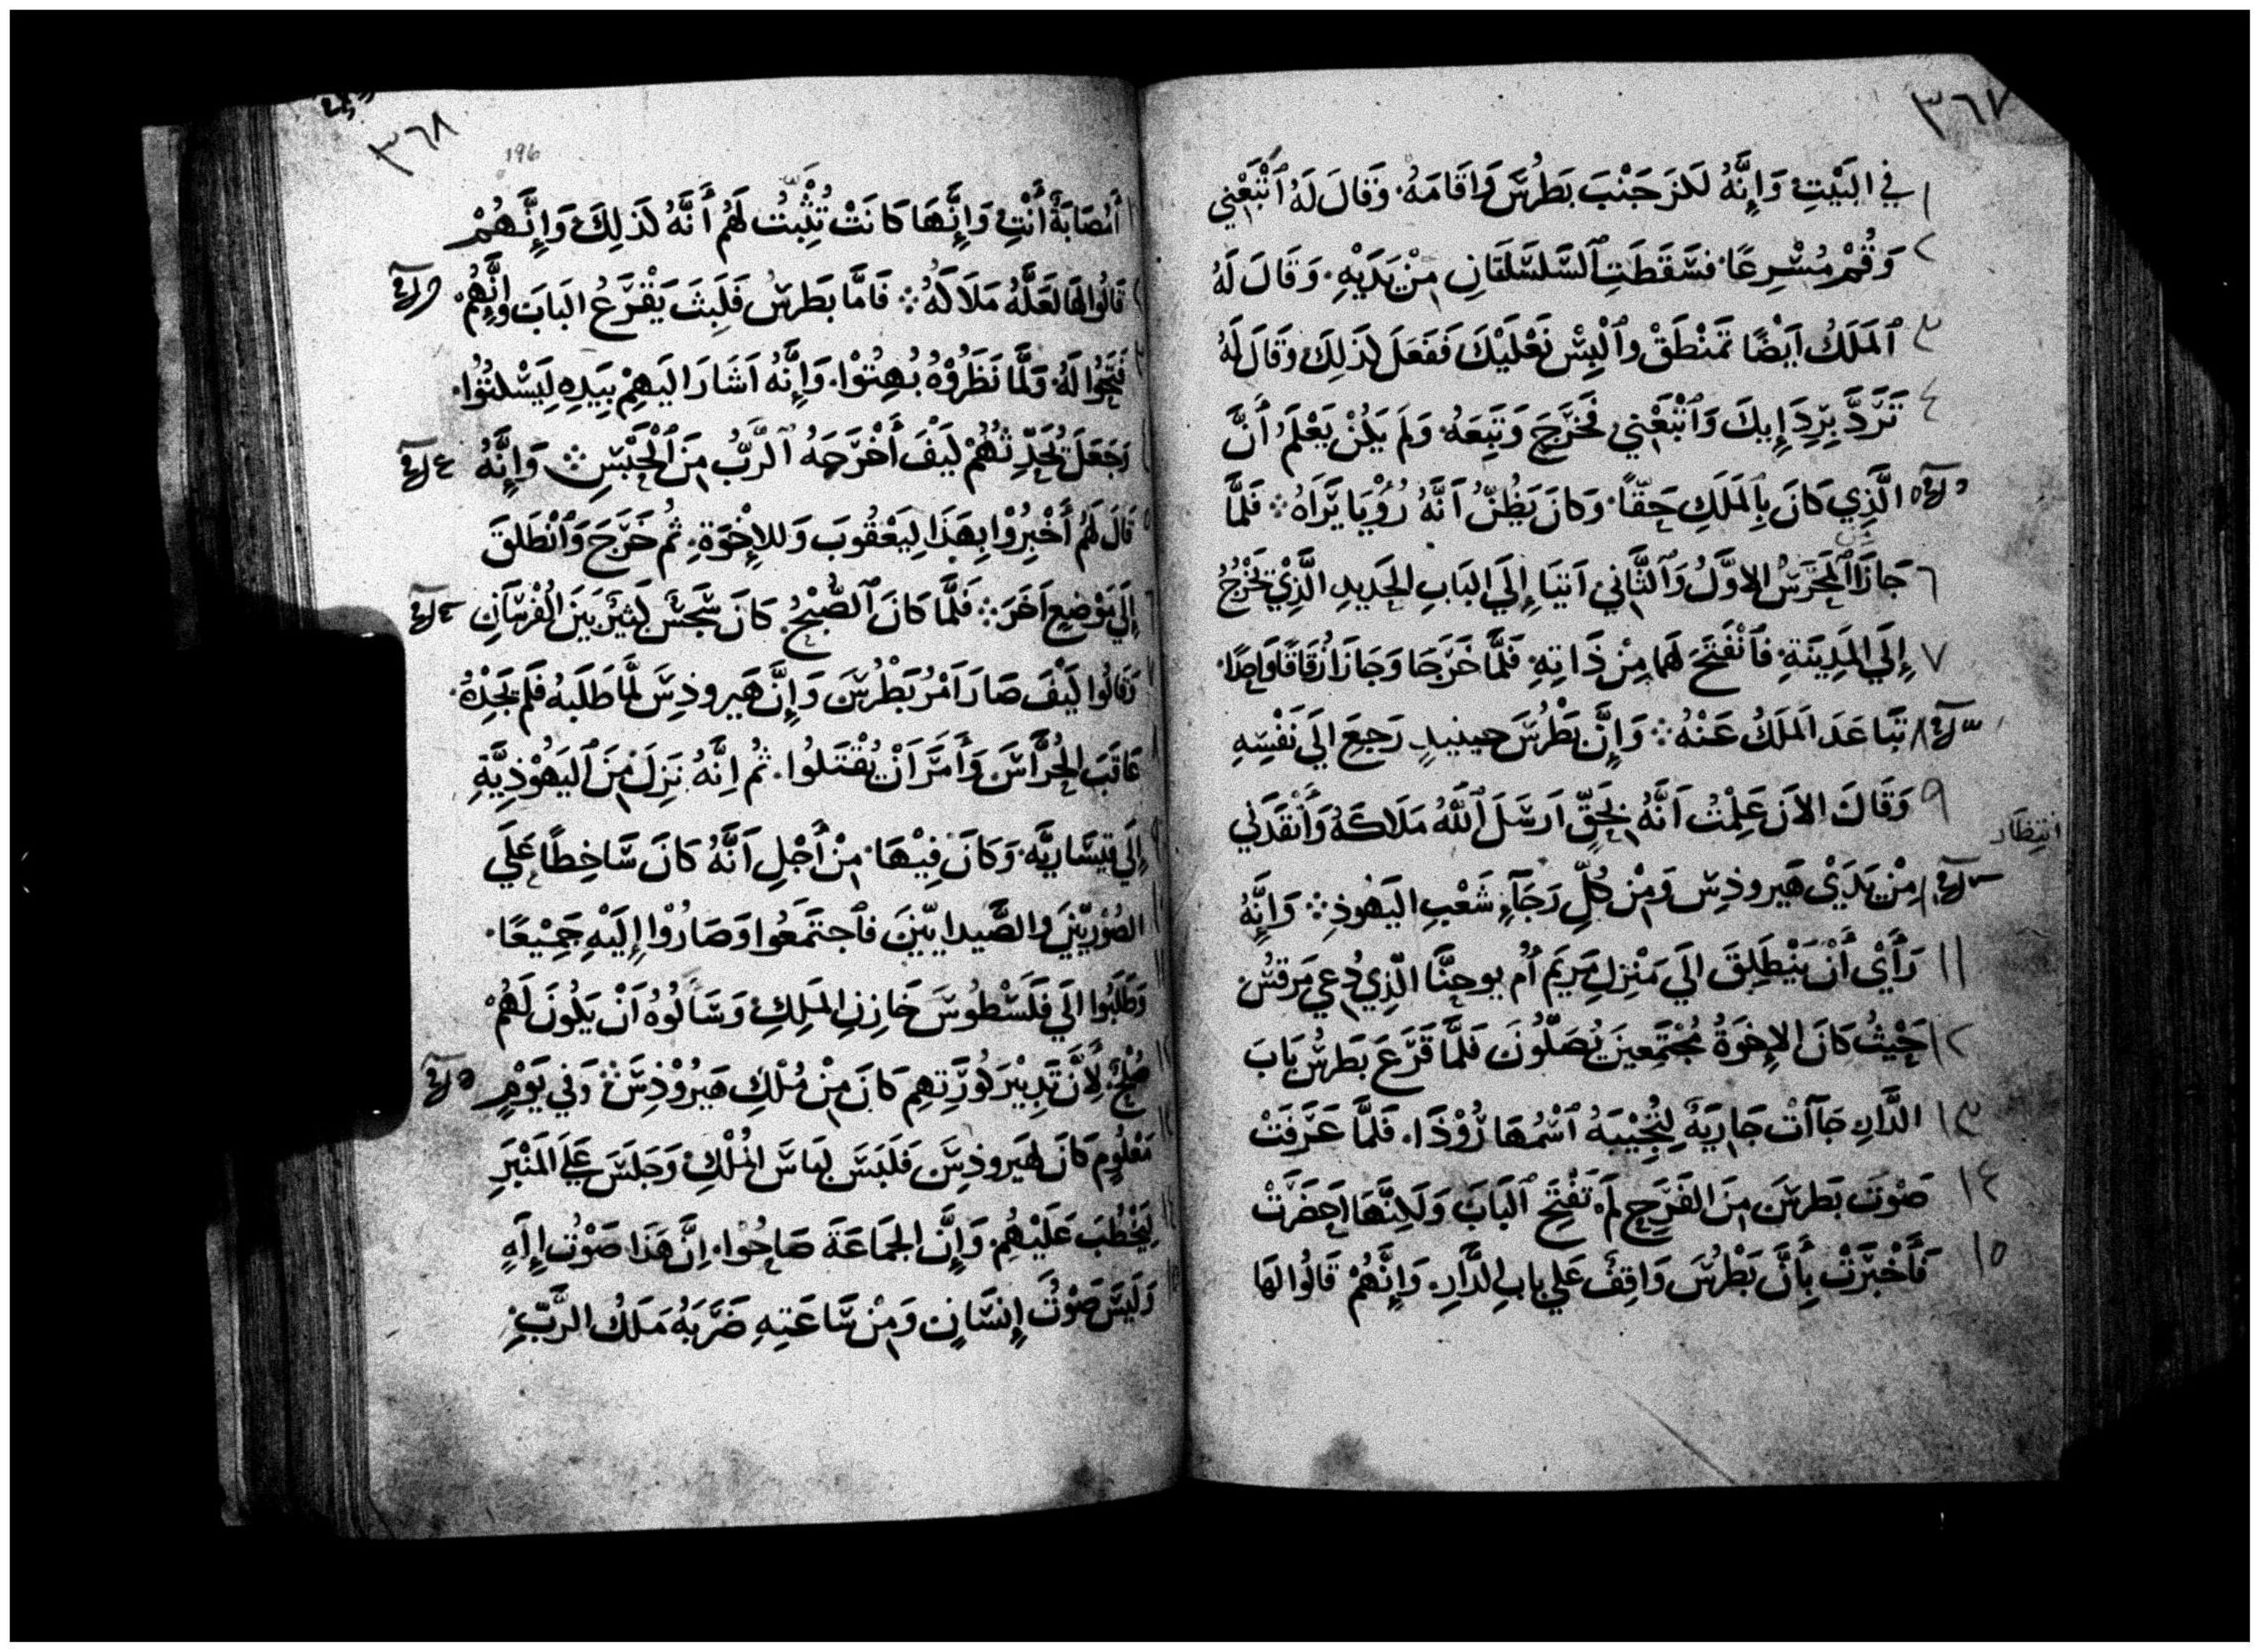 ٣٦٧
١ في البَيْتِ وَإِنَّهُ لَكَزَ جَنْبَ بَطْرُسَ وَاَقَامَهُ وَقَالَ لَهُ ٱتْبَعْنِي
٢ وَقُمْ مُسْرِعًا فَسَقَطَتِ ٱلسَّلْسَلَتَانِ مِنْ يَدَيْهِ وَقَالَ لَهُ
٣ ٱلمَلَكُ اَيْضًا تَمَنْطَقْ وٱلْبِسْ نَعْلَيْكَ فَفَعَلَ كَذَلِكَ وَقَالَ لَهُ
٤ تَرَدَّ بِرِدَإِيكَ وَٱتْبَعْنِي فَخَرَجَ وَتَبِعَهُ وَلَم يَكُنْ يَعْلَمُ أَنَّ
٥ الَّذِي كَانَ بِٱلمَلَكِ حَقّاً وَكَانَ يَظُنُّ اَنَّهُ رُؤْيَا يَرَاهُ ܀ فَلَمَّا
٦ جَازَا ٱلمَحْرَسُ الاوَّلُ وَٱلثَّانِي اَتيَا إِلَي البَابِ الحَدِيدِ الَّذِيْ تَخْرُجُ
٧ إِلَي المَدِينَةِ فَٱنْفَتَحَ لَهما مِنْ ذَاتِهِ فَلَمَّا خَرَجَا وَجَازَا زُقَاقًا وَاحِدًا
٨ تَبَاعَدَ المَلَكُ عَنْهُ ܀ وَإِنَّ بَطْرُسَ حِينيدٍ رَجعَ الَي نَفْسِهِ
٩ وَقَالَ الاَنَ عَلِمْتُ اَنَّهُ بِحَقٍّ اَرسَلَ ٱللَّهُ مَلَاكَهُ وَأَنْقَدَنِي
انتِظَار
١٠ مِنْ يَدَيْ هَيروذِس وَمِنْ كُلِّ رَجَآءِ شَعْبِ اليَهُوذِ ܀ وَاِنَّهُ
١١ رَأَيْ أَنْ يَنْطَلِقَ الَي مَنْزِلِ مَرِيَم أُم يوحِنَّا الّذِي دُعي مَرقسُ
١٢ حَيْثُ كَانَ الاِخوَةُ مُجْتَمَعِينَ يُصَلُّونَ فَلَمَّا قَرَعَ بَطرسُ بَابَ
١٣ الدَّارِ جَآآتْ جَارِيَةٌ لِتُجِيْبَهُ ٱسْمُهَا رُوْذَا فَلَمَّا عَرَفَتْ
١٤ صَوْتَ بَطرسَ مِنَ الفَرَحِ لَم تَفْتَحِ ٱلبَابَ وَلَكِنَّهَا اَحضَرَتْ
١٥ فَأَخْبَرَتْ بِأَنَّ بَطْرُسَ وَاقِفٌ عَلي بابِ الدَّارِ وَإِنَّهُمْ قَالُوا لهَا
٣٦٨
196
أَمُصَابَةٌ أَنْتِ وَإِنَّهَا كَانَتْ تُثْبِّتُ لَهُم أَنَّهُ كَذَلِكَ وَإِنَّهُمْ
قَالُوا لهَا لَعَلَّهُ مَلَاكَهُ ܀ فَامَّا بَطَرسُ فَلَبِثَ يَقْرَعُ البَابَ وَإِنَّهُمْ
فَتَحُوا لَهُ وَلَمَّا نَظَرُوْهُ بُهِتُوْا وَإِنَّهُ اَشَارَ الَيهِمْ بِيَدِهِ لِيَسْكتُوُا
وَجَعَلَ يُحَدِّثهُمْ كَيْفَ أَخْرَجَهُ ٱلرَّبُّ مِنَ ٱلْحَبْسِ ܀ وَإِنَّهُ
قَالَ لَهُم أَخْبِرُوْا بِهَذَا لِيَعْقُوبَ وَللاِخْوَةِ ثُم خَرَجَ وَٱنْطَلقَ
إِلَي مَوْضِعٍ آخَرَ ܀ فَلَمَّا كَانَ ٱلصُّبْحُ كَانَ سَجَسٌ كَثِيرٌ بَينَ الفُرسَانِ
وَقَالُوا كَيْفَ صَارَ اَمْرُ بَطْرُسَ وَإِنَّ هَيروذِسَ لَمَّا طَلَبَهُ فَلَم يَجِدْهُ
عَاقَبَ الحُرَّاسَ وَأَمَرَ اَنْ يُقْتَلُوا ثُم اِنَّهُ نَزِلَ مِنَ ٱليَهُوْذِيَّةِ
إِلَي قيسَاريَّه وَكَانَ فِيْهَا مِنْ أَجْلِ اَنَّهُ كَانَ سَاخِطًا عَلَي
الصُوْرِيّينَ والصَّيدايّينَ فٱجتَمَعُوا وَصَارُوْا إِلَيْهِ جَمِيْعًا
وَطَلَبُوا الَي فَلَسْطُوسَ خَازِنِ المَلِكِ وَسَاَلُوهُ اَنْ يَكُونَ لَهُمْ
صُلْحٌ لِأَنَّ تَدبِيْرَ كُوْرَتِهِم كَانَ مِنْ مُلْكِ هَيرُوْذِسَ ܀ وَفي يَوْمٍ
مَعْلُومٍ كَانَ لهَيروذِسَ فَلَبَسَ لِبَاسَ المُلْكِ وَجَلسَ عَلَي المَنْبَرِ
لِيَخْطُبَ عَلَيْهُم وَإِنَّ الجَمَاعَةَ صَاحُوْا اِنَّ هَذَا صَوْتُ إِلَهِ
وَلَيسَ صَوْتُ إِنسَانٍ وَمِنْ سَاعَتِهِ ضَرَبَهُ مَلَكُ الرَّبِّ